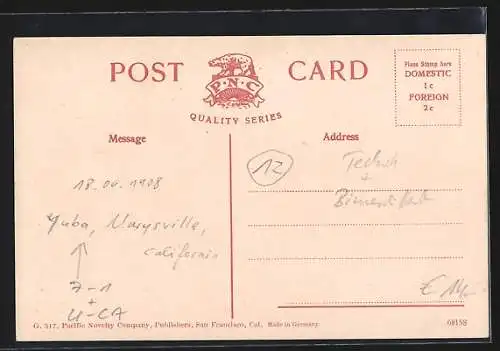 POST CARD
P·N·C
QUALITY SERIES
Place Stamp here
DOMESTIC
1c
FOREIGN
2c
Message
Address
12
18.04.1908
Yuba, Marysville,
California
7-1
+
U-CA
€
G. 517. Pacific Novelty Company, Publishers, San Francisco, Cal. Made in Germany.